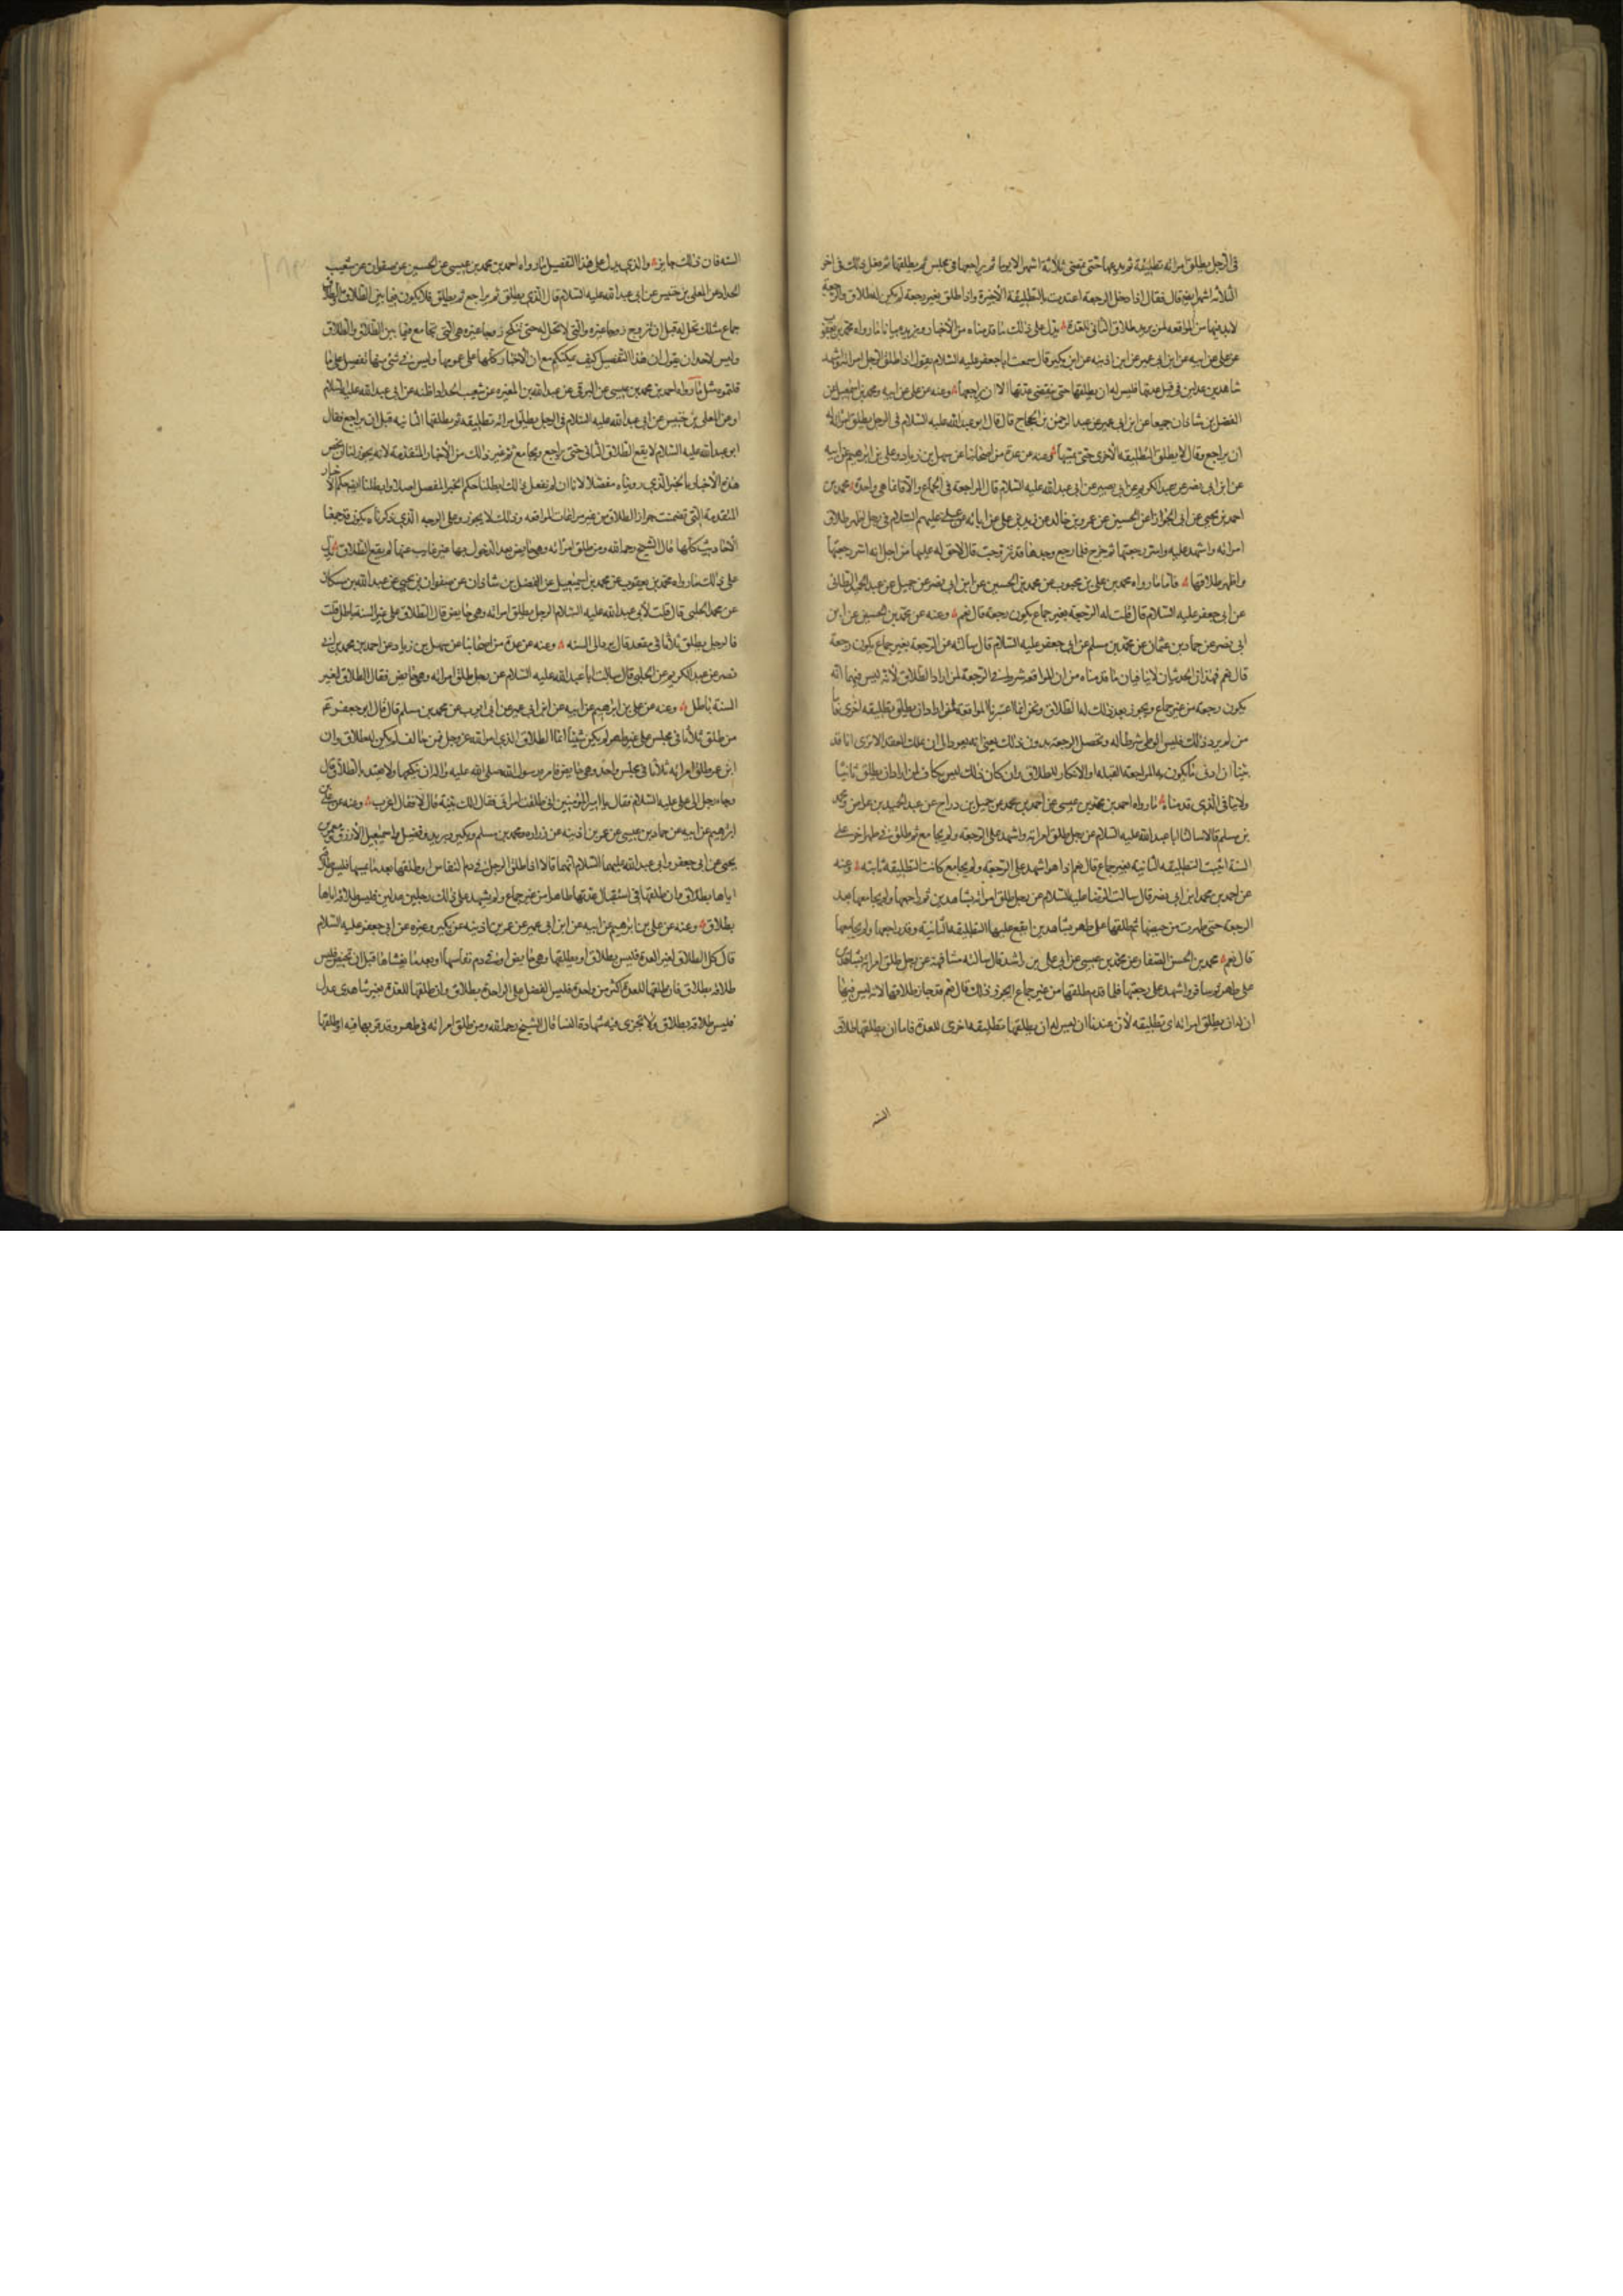 في الرجل يطلق امرأته تطليقة ثم يدعها حتى تمضي ثلاثة اشهر الا يوما ثم يراجعها في مجلس ثم يطلقها ثم فعل ذلك في اخر
الثلاثة اشهر ايضا قال فقال اذا دخل الرجعة اعتدت بالتطليقة الأخيرة واذا طلق بغير رجعة لم يكن له طلاق والرجعة
لابد فيها من المواقعة لمن يريد طلاق الثاني للعدة يدل على ذلك ما قدمناه من الأخبار ويزيده بيانا ما رواه محمد بن يعقوب
عن علي عن ابيه عن ابن ابي عمير عن ابن اذينه عن ابن بكير قال سمعت ابا جعفر عليه السلام يقول اذا طلق الرجل امرأته واشهد
شاهدين عدلين في قبل عدتها فليس له ان يطلقها حتى تنقضي عدتها الا ان يراجعها وعنه عن علي عن ابيه ومحمد بن اسمعيل عن
الفضل بن شاذان جميعا عن ابن ابي عمير عن عبد الرحمن بن الحجاج قال قال ابو عبد الله عليه السلام في الرجل يطلق امرأته له
ان يراجع وقال لا يطلق التطليقه الأخرى حتى يمسها وعنه عن عدة من اصحابنا عن سهل بن زياد وعلي بن ابرهيم عن ابيه
عن ابن ابي نصر عن عبد الكريم عن ابي بصير عن ابي عبد الله عليه السلام قال المراجعة في الجماع والا فانما هي واحدة محمد بن
احمد بن يحيى عن ابي الجوزا عن الحسين عن عمرو بن خالد عن زيد بن علي عن ابائه عن علي عليهم السلام في رجل اظهر طلاق
امرأته واشهد عليه واسر رجعتها ثم خرج فلما رجع وجدها قد تزوجت قال لاحق له عليها من اجل انه اسر رجعتها
واظهر طلاقها فأما ما رواه محمد بن علي بن محبوب عن محمد بن الحسين عن ابن ابي نصر عن جميل عن عبد الحميد الطائي
عن ابي جعفر عليه السلام قال قلت له الرجعة بغير جماع يكون رجعة قال نعم وعنه عن محمد بن الحسين عن ابن
ابي نصر عن حماد بن عثمان عن محمد بن مسلم عن ابي جعفر عليه السلام قال سألته عن الرجعة بغير جماع يكون رجعة
قال نعم فهذان الحديثان لا ينافيان ما قدمناه من ان المواقعه شرط في الرجعة لمن اراد الطلاق لأنه ليس فيهما انه
يكون رجعة من غير جماع ويجوز بعد ذلك له الطلاق ونحن انما اعتبرنا المواقعة لمن اراد ان يطلق تطليقه اخرى فأما
من لم يرد ذلك فليس الوطي شرطا له وتحصل الرجعة بدون ذلك يعني انه يعود الى ان يملك العقد الا ترى انا قد
بينا ان ادنى ما يكون به المراجعة القبلة او الانكار للطلاق وان كان ذلك ليس بكاف لمن اراد ان يطلق ثانيا
ولا ينافي الذي قدمناه ما رواه احمد بن محمد بن عيسى عن احمد بن محمد عن جميل بن دراج عن عبد الحميد بن عواض ومحمد
بن مسلم قالا سالنا ابا عبد الله عليه السلام عن رجل طلق امرأته واشهد على الرجعة ولم يجامع ثم طلق في طهر اخر على
السنة اتثبت التطليقه الثانية بغير جماع قال نعم اذا هو اشهد على الرجعة ولم يجامع كانت التطليقه ثابته وعنه
عن احمد بن محمد ابن ابي نصر قال سالت الرضا عليه السلام عن رجل طلق امرأته بشاهدين ثم راجعها ولم يجامعها بعد
الرجعة حتى طهرت من حيضها ثم طلقها على طهر بشاهدين ايقع عليها التطليقه الثانية وقد راجعها ولم يجامعها
قال نعم محمد بن الحسن الصفار عن محمد بن عيسى عن ابي علي بن راشد قال سالته مشافهة عن رجل طلق امرأته بشاهدين
على طهر ثم سافر واشهد على رجعتها فلما قدم طلقها من غير جماع ايجوز ذلك قال نعم قد جاز طلاقها لانه ليس فيها
ان له ان يطلق امرأته اي تطليقه لأن عندنا ان ليس له ان يطلقها تطليقه اخرى للعدة فاما ان يطلقها طلاق
السنه
السنه فان ذلك جايز والذي يدل على هذا التفصيل ما رواه احمد بن محمد بن عيسى عن الحسين عن صفوان عن شعيب
الحداد عن المعلى بن خنيس عن ابي عبد الله عليه السلام قال الذي يطلق ثم يراجع ثم يطلق فلا يكون فيما بين الطلاق والطلاق
جماع فتلك تحل له قبل ان تزوج زوجا غيره والتي لا تحل له حتى تنكح زوجا غيره هي التي تجامع فيما بين الطلاق والطلاق
وليس لاحد ان يقول ان هذا التفصيل كيف يمكنكم مع ان الأخبار كلها على عمومها وليس في شئ منها تفصيل على ما
قلتموه مثل ما رواه احمد بن محمد بن عيسى عن البرقي عن عبد الله بن المغيره عن شعيب الحداد اظنه عن ابي عبد الله عليه السلام
او عن المعلى بن خنيس عن ابي عبد الله عليه السلام في الرجل يطلق امرأته تطليقه ثم يطلقها الثانيه قبل ان يراجع فقال
ابو عبد الله عليه السلام لا يقع الطلاق الثاني حتى يراجع ويجامع ثم غير ذلك من الأخبار المتقدمة لانه يجوز لنا ان نخص
هذه الأخبار بالخبر الذي رويناه مفصلا لانا ان لم نفعل ذلك ابطلنا حكم الخبر المفصل اصلا وابطلنا ايضا حكم الأخبار
المتقدمة التي تضمنت جواز الطلاق من غير مراعات المواقعه وذلك لا يجوز وعلى الوجه الذي ذكرناه يكون قد جمعنا
الأحاديث كلها قال الشيخ رحمه الله ومن طلق امرأته وهي حايض بعد الدخول بها غير غايب عنها لم يقع الطلاق يدل
على ذلك ما رواه محمد بن يعقوب عن محمد بن اسمعيل عن الفضل بن شاذان عن صفوان بن يحيى عن عبد الله بن مسكان
عن محمد الحلبي قال قلت لأبي عبد الله عليه السلام الرجل يطلق امرأته وهي حايض قال الطلاق على غير السنة باطل قلت
فالرجل يطلق ثلاثا في مقعد قال يرد الى السنه وعنه عن عدة من اصحابنا عن سهل بن زياد عن احمد بن محمد بن ابي
نصر عن عبد الكريم عن الحلبي قال سالت ابا عبد الله عليه السلام عن رجل طلق امرأته وهي حايض فقال الطلاق لغير
السنة باطل وعنه عن علي بن ابرهيم عن ابيه عن ابن ابي عمير عن ابي ايوب عن محمد بن مسلم قال قال ابو جعفر ع
من طلق ثلاثا في مجلس على غير طهر لم يكن شيئا انما الطلاق الذي امر الله عز وجل فمن خالف لم يكن له طلاق وان
ابن عمر طلق امرأته ثلاثا في مجلس واحد وهي حايض فامره رسول الله صلى الله عليه واله ان ينكحها ولا يعتد بالطلاق قال
وجاء رجل الى علي عليه السلام فقال يا امير المؤمنين اني طلقت امرأتي فقال الك بينة قال لا فقال اعزب وعنه عن علي
ابرهيم عن ابيه عن حماد بن عيسى عن عمر بن اذينه عن زراره ومحمد بن مسلم وبكير وبريد وفضيل واسمعيل الأزرق ومعمر بن
يحيى عن ابي جعفر وابي عبد الله عليهما السلام انهما قالا اذا طلق الرجل في دم النفاس او طلقها بعد ما يمسها فليس طلاقه
اياها بطلاق وان طلقها في استقبال عدتها طاهرا من غير جماع ولم يشهد على ذلك رجلين عدلين فليس طلاقه اياها
بطلاق وعنه عن علي بن ابرهيم عن ابيه عن ابن ابي عمير عن عمر بن اذينه عن بكير وغيره عن ابي جعفر عليه السلام
قال كل الطلاق لغير العدة فليس بطلاق او يطلقها وهي حايض او في دم نفاسها او بعد ما يغشاها قبل ان تحيض فليس
طلاقه بطلاق فان طلقها للعدة اكثر من واحدة فليس الفضل على الواحدة بطلاق وان طلقها للعدة بغير شاهدي عدل
فليس طلاقه بطلاق ولا تجزي فيه شهادة النسا قال الشيخ رحمه الله ومن طلق امرأته في طهر وقد قربها فيه او طلقها